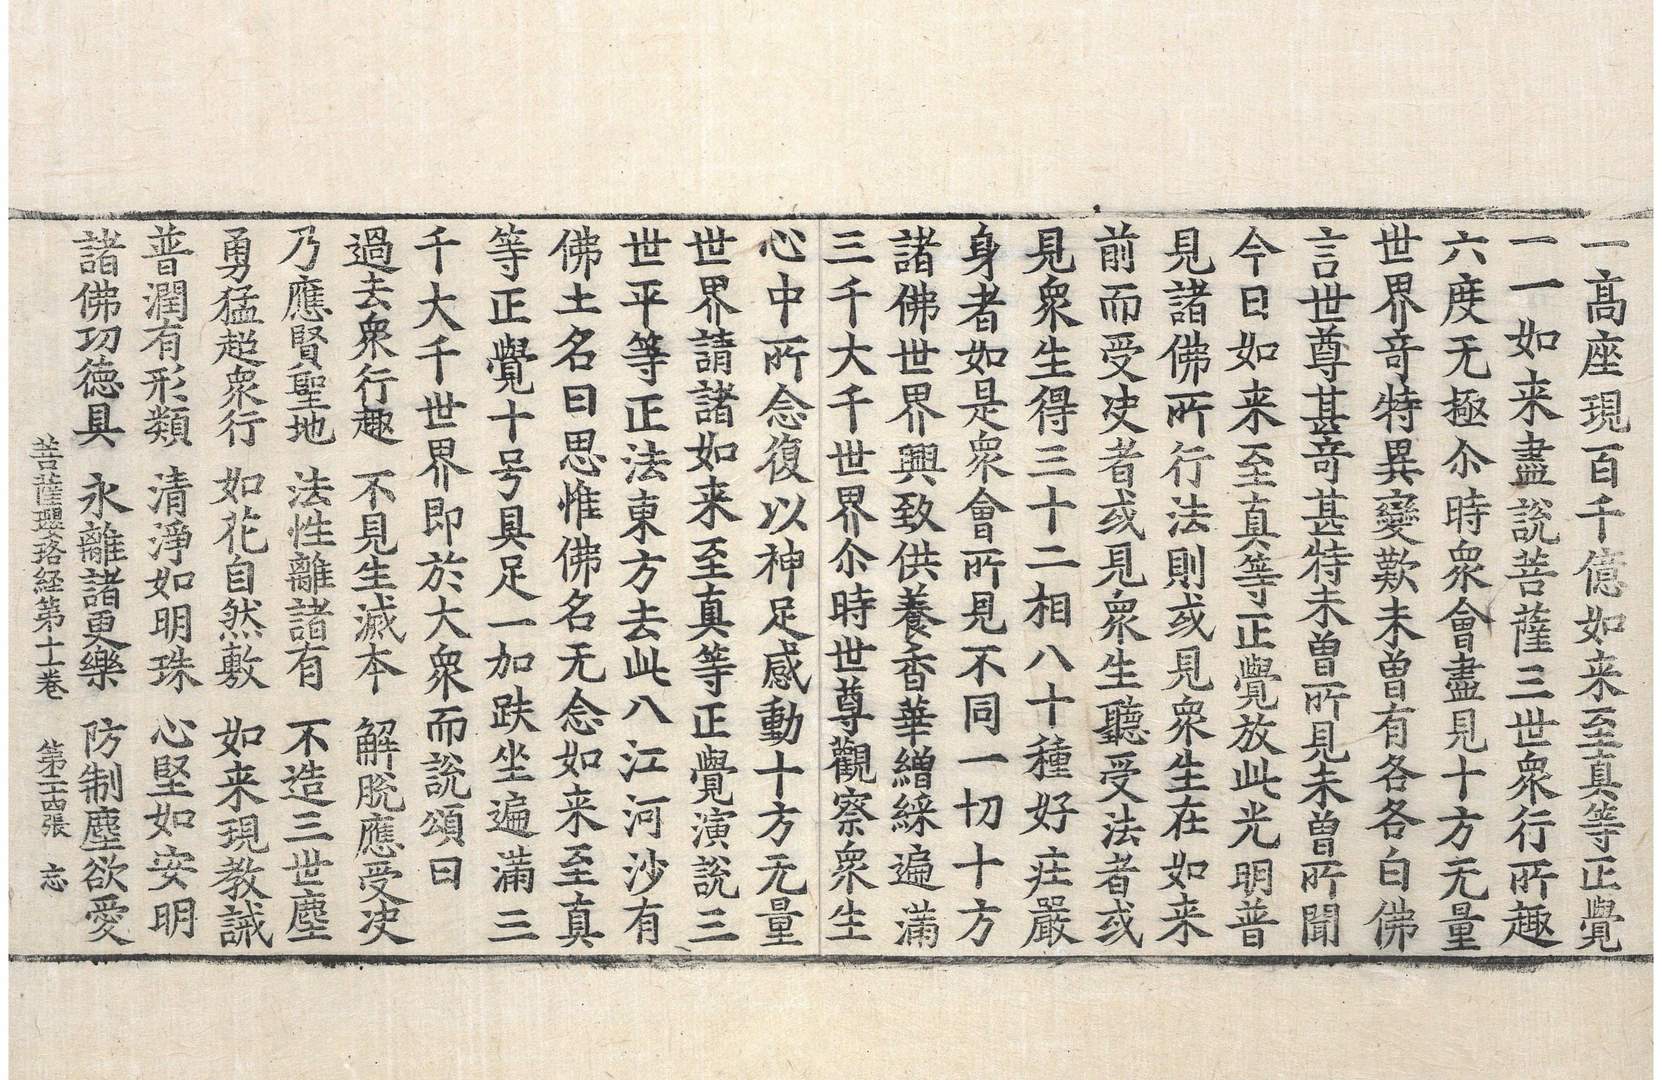 一高座現百千億如来至真等正覺
一一如来盡說菩薩三世衆行所趣
六度无極尒時衆會盡見十方无量
世界奇特異變歎未曽有各各白佛
言世尊甚奇甚特未曽所見未曽所聞
今日如来至真等正覺放此光明普
見諸佛所行法則或見衆生在如来
前而受决者或見衆生聽受法者或
見衆生得三十二相八十種好莊嚴
身者如是衆會所見不同一切十方
諸佛世界興致供養香華繒綵遍滿
三千大千世界尒時世尊觀察衆生
心中所念復以神足感動十方无量
世界請諸如来至真等正覺演說三
世平等正法東方去此八江河沙有
佛土名曰思惟佛名无念如来至真
等正覺十号具足一加趺坐遍滿三
千大千世界即於大衆而說頌曰
過去衆行趣　不見生滅本　解脫應受决
乃應賢聖地　法性離諸有　不造三世塵
勇猛趍衆行　如花自然敷　如来現教誡
普潤有形類　清淨如明珠　心堅如安明
諸佛功德具　永離諸更樂　防制塵欲愛
菩薩瓔珞經第十一卷　第二十四張　忘